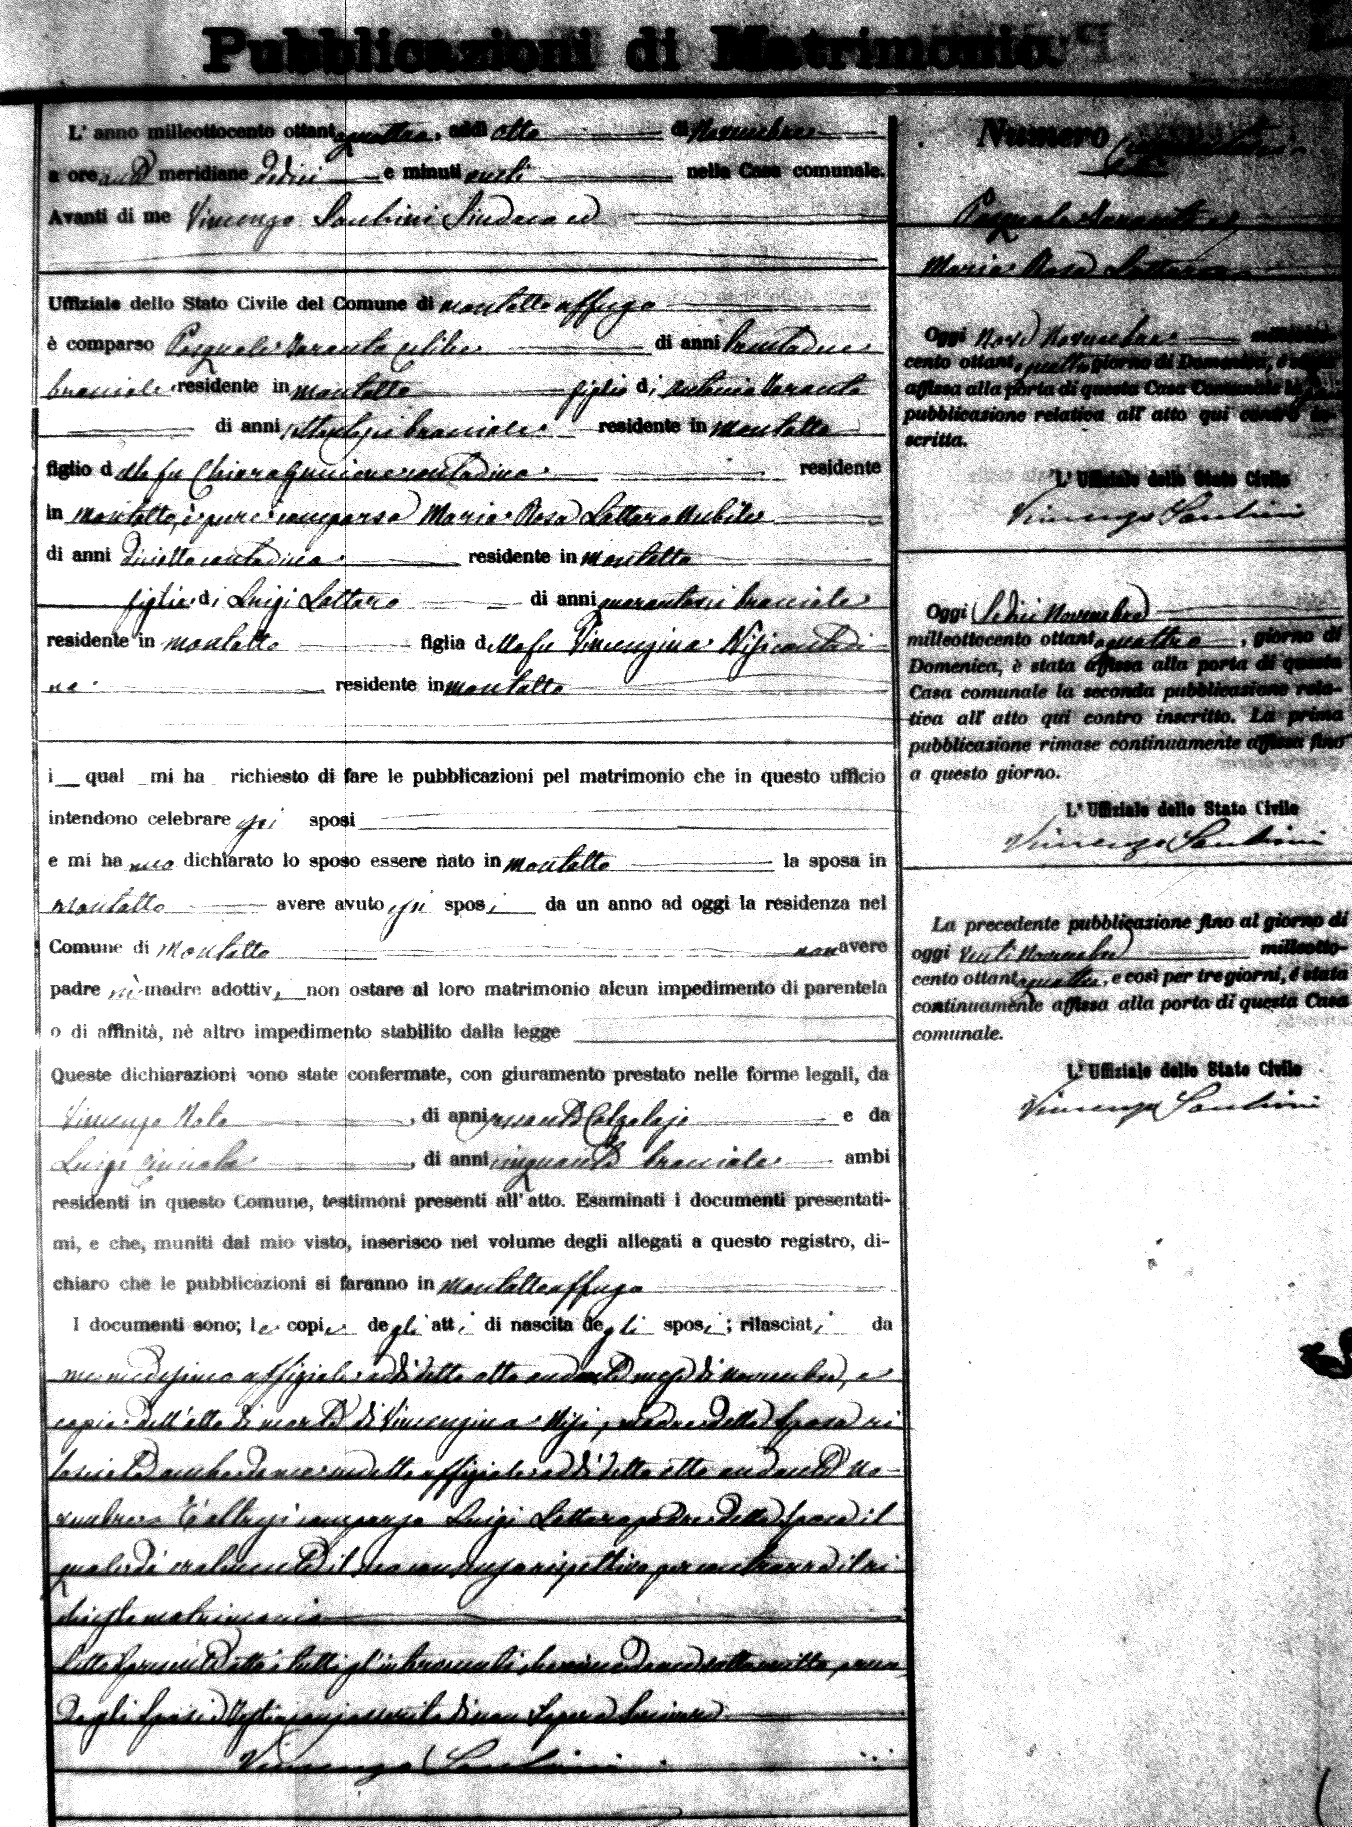 Pubblicazioni di Matrimonio
L' anno milleottocento ottantaquattro, addì otto di Novembre
a ore anti meridiane dodici e minuti venti nella Casa comunale.
Avanti di me Vincenzo Santini Sindaco ed
Uffiziale dello Stato Civile del Comune di Montalto uffugo
è comparso Pasquale Taranto celibe di anni trentadue
bracciale residente in Montalto figlio di Antonio Taranto
di anni bracciale residente in Montalto
figlio della fu Chiara contadina residente
in Montalto, è pure comparsa Maria Rosa Lattaro Nubile
di anni diciotto contadina residente in Montalto
figlia di Luigi Lattaro di anni quarantasei bracciale
residente in Montalto figlia della fu Vincenzina Nisi contadi
na residente in Montalto
i qual mi ha richiesto di fare le pubblicazioni pel matrimonio che in questo ufficio
intendono celebrare essi sposi
e mi ha nno dichiarato lo sposo essere nato in Montalto la sposa in
Montalto avere avuto essi sposi da un anno ad oggi la residenza nel
Comune di Montalto non avere
padre nè madre adottivi non ostare al loro matrimonio alcun impedimento di parentela
o di affinità, nè altro impedimento stabilito dalla legge
Queste dichiarazioni sono state confermate, con giuramento prestato nelle forme legali, da
Vincenzo , di anni sessanta Calzolajo e da
Luigi , di anni cinquanta bracciale ambi
residenti in questo Comune, testimoni presenti all' atto. Esaminati i documenti presentati-
mi, e che, muniti dal mio visto, inserisco nel volume degli allegati a questo registro, di-
chiaro che le pubblicazioni si faranno in Montalto uffugo
I documenti sono; le copie degli atti di nascita degli sposi; rilasciati da
me medesimo uffiziale addì detto otto andante mese di novembre, e
copia dell'atto di morte di Vincenzina Nisi, madre della sposa ri
lasciata anche da me suddetto uffiziale addì detto otto andante no
vembre. È altresì comparso Luigi Lattaro padre della sposa il
quale dà oralmente il suo consenso rispettivo per contrarre il ri
chiesto matrimonio
Letto il presente atto a tutti gl'intervenuti, si è da me sottoscritto,
dagli sposi e testimoni asserito di non sapere scrivere
Vincenzo Santini
Numero
Pasquale Taranto ed
Maria Rosa Lattaro
Oggi Nove Novembre milleotto-
cento ottantaquattro giorno di Domenica, è stata
affissa alla porta di questa Casa Comunale la
pubblicazione relativa all' atto qui contro in-
scritta.
L' Uffiziale dello Stato Civile
Vincenzo Santini
Oggi Sedici Novembre
milleottocento ottantaquattro, giorno di
Domenica, è stata affissa alla porta di questa
Casa comunale la seconda pubblicazione rela-
tiva all' atto qui contro inscritto. La prima
pubblicazione rimase continuamente affissa fino
a questo giorno.
L' Uffiziale dello Stato Civile
Vincenzo Santini
La precedente pubblicazione fino al giorno di
oggi venti Novembre milleotto-
cento ottantaquattro, e così per tre giorni, è stata
continuamente affissa alla porta di questa Casa
comunale.
L' Uffiziale dello Stato Civile
Vincenzo Santini